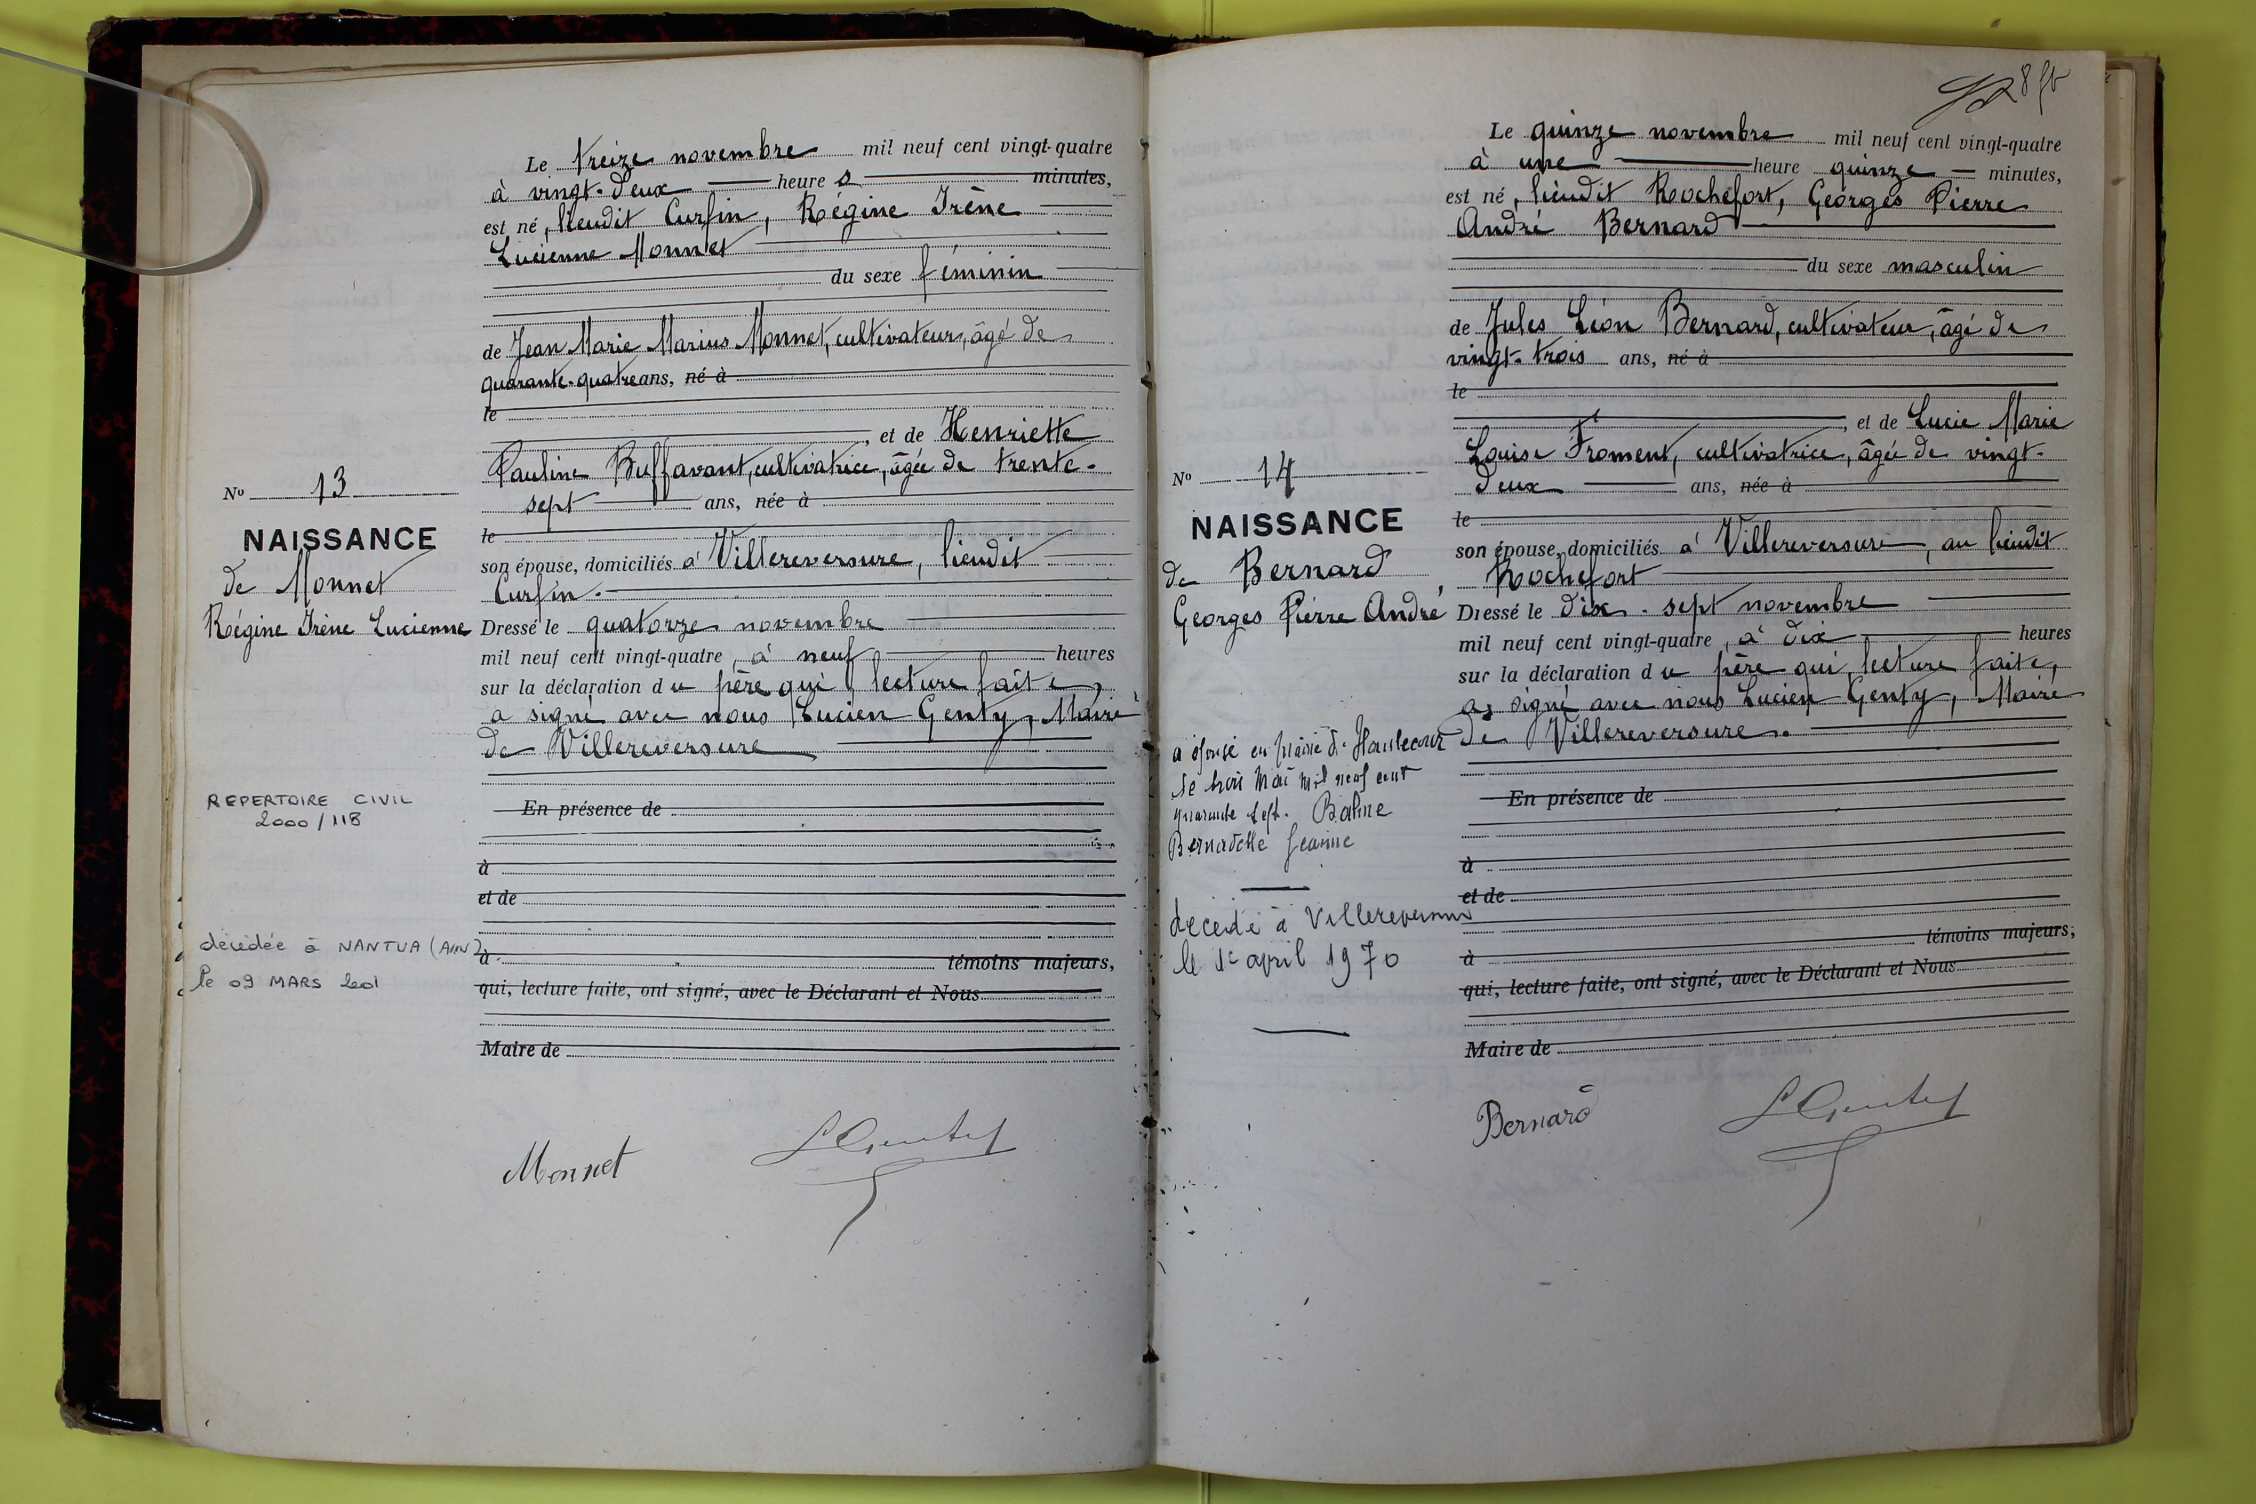 Le treize novembre mil neuf cent vingt-quatre
à vingt-deux heures minutes,
est né, lieudit Curfin, Régine Irène
Lucienne Monnet
du sexe féminin
de Jean Marie Marius Monnet, cultivateur, âgé de
quarante-quatre ans, né à
le
, et de Henriette
Pauline Buffavant, cultivatrice, âgée de trente-
sept ans, née à
le
son épouse, domiciliés à Villereversure, lieudit
Curfin.
Dressé le quatorze novembre
mil neuf cent vingt-quatre, à neuf heures
sur la déclaration du père qui, lecture faite,
a signé avec nous Lucien Genty, Maire
de Villereversure
En présence de
à
et de
à
témoins majeurs,
qui, lecture faite, ont signé, avec le Déclarant et Nous
Maire de
Monnet LGenty
No 13
NAISSANCE
de Monnet
Régine Irène Lucienne
REPERTOIRE CIVIL
2000/118
décédée à NANTUA (AIN)
le 09 MARS 2001
8
Le quinze novembre mil neuf cent vingt-quatre
à une heure quinze minutes,
est né, lieudit Rochefort, Georges Pierre
André Bernard
du sexe masculin
de Jules Léon Bernard, cultivateur, âgé de
vingt-trois ans, né à
le
, et de Lucie Marie
Louise Froment, cultivatrice, âgée de vingt-
deux ans, née à
le
son épouse, domiciliés à Villereversure, au lieudit
Rochefort
Dressé le dix-sept novembre
mil neuf cent vingt-quatre, à dix heures
sur la déclaration du père qui, lecture faite,
a signé avec nous Lucien Genty, Maire
de Villereversure.
En présence de
à
et de
témoins majeurs,
à
qui, lecture faite, ont signé, avec le Déclarant et Nous
Maire de
Bernard LGenty
No 14
NAISSANCE
de Bernard
Georges Pierre André
a épousé en mairie de Hautecour
le trois Mai mil neuf cent
quarante sept. Balme
Bernadette Jeanne
décédé à Villereversure
le 1e april 1970